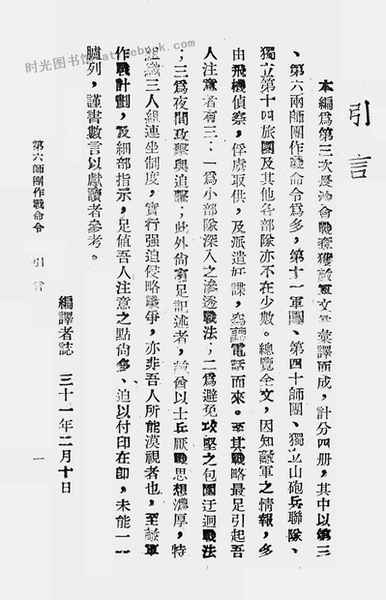 时光图书馆
引言
本編爲第三次長沙會戰奪獲敵軍文件彙譯而成,計分四册,其中以第三
、第六兩師團作戰命令爲多,第十一軍團、第四十師團、獨立山砲兵聯隊、
獨立第十四旅團及其他各部隊亦不在少數。總覽全文,因知敵軍之情報,多
由飛機偵察,俘虜取供,及派遣奸諜,竊聽電話而來。至其戰略最足引起吾
人注意者有三:一爲小部隊深入之滲透戰法;二爲避免攻堅之包圍迂迴戰法
;三爲夜間攻擊與追擊;此外尙有足記述者,敵酋以士兵厭戰思想濃厚,特
組織三人組連坐制度,實行强迫侵略戰爭,亦非吾人所能漠視者也,至敵軍
作戰計劃,及細部指示,足値吾人注意之點尙多、迫以付印在卽,未能一一
臚列,謹書數言以獻讀者參考。
編譯者誌 三十一年二月十日
第六師團作戰命令 引言 一